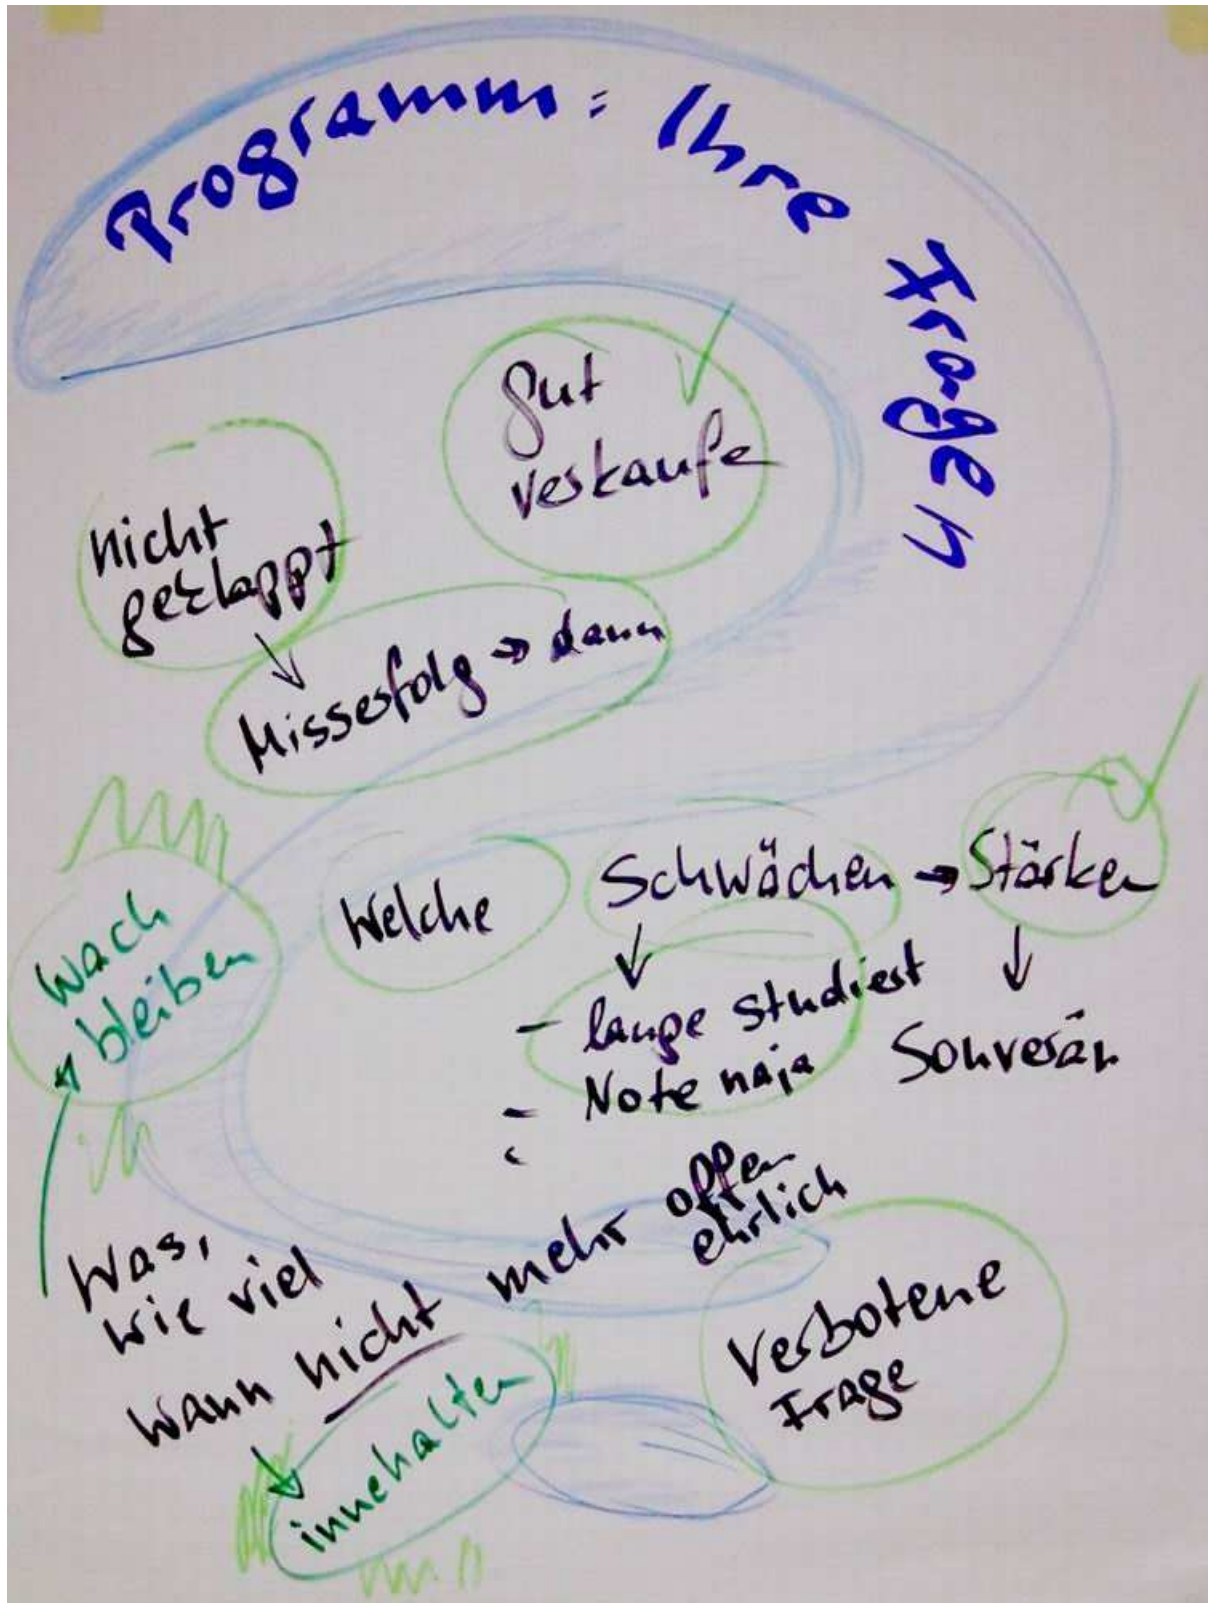 Programm: Ihre Fragen
gut
verkaufe
nicht
geklappt
Misserfolg → dann
Welche
Schwächen → Stärken
wach
bleiben
- lange studiert
- Note naja
-
Souverän
Was,
wie viel
wann nicht mehr offen
ehrlich
innehalten
Verbotene
Frage